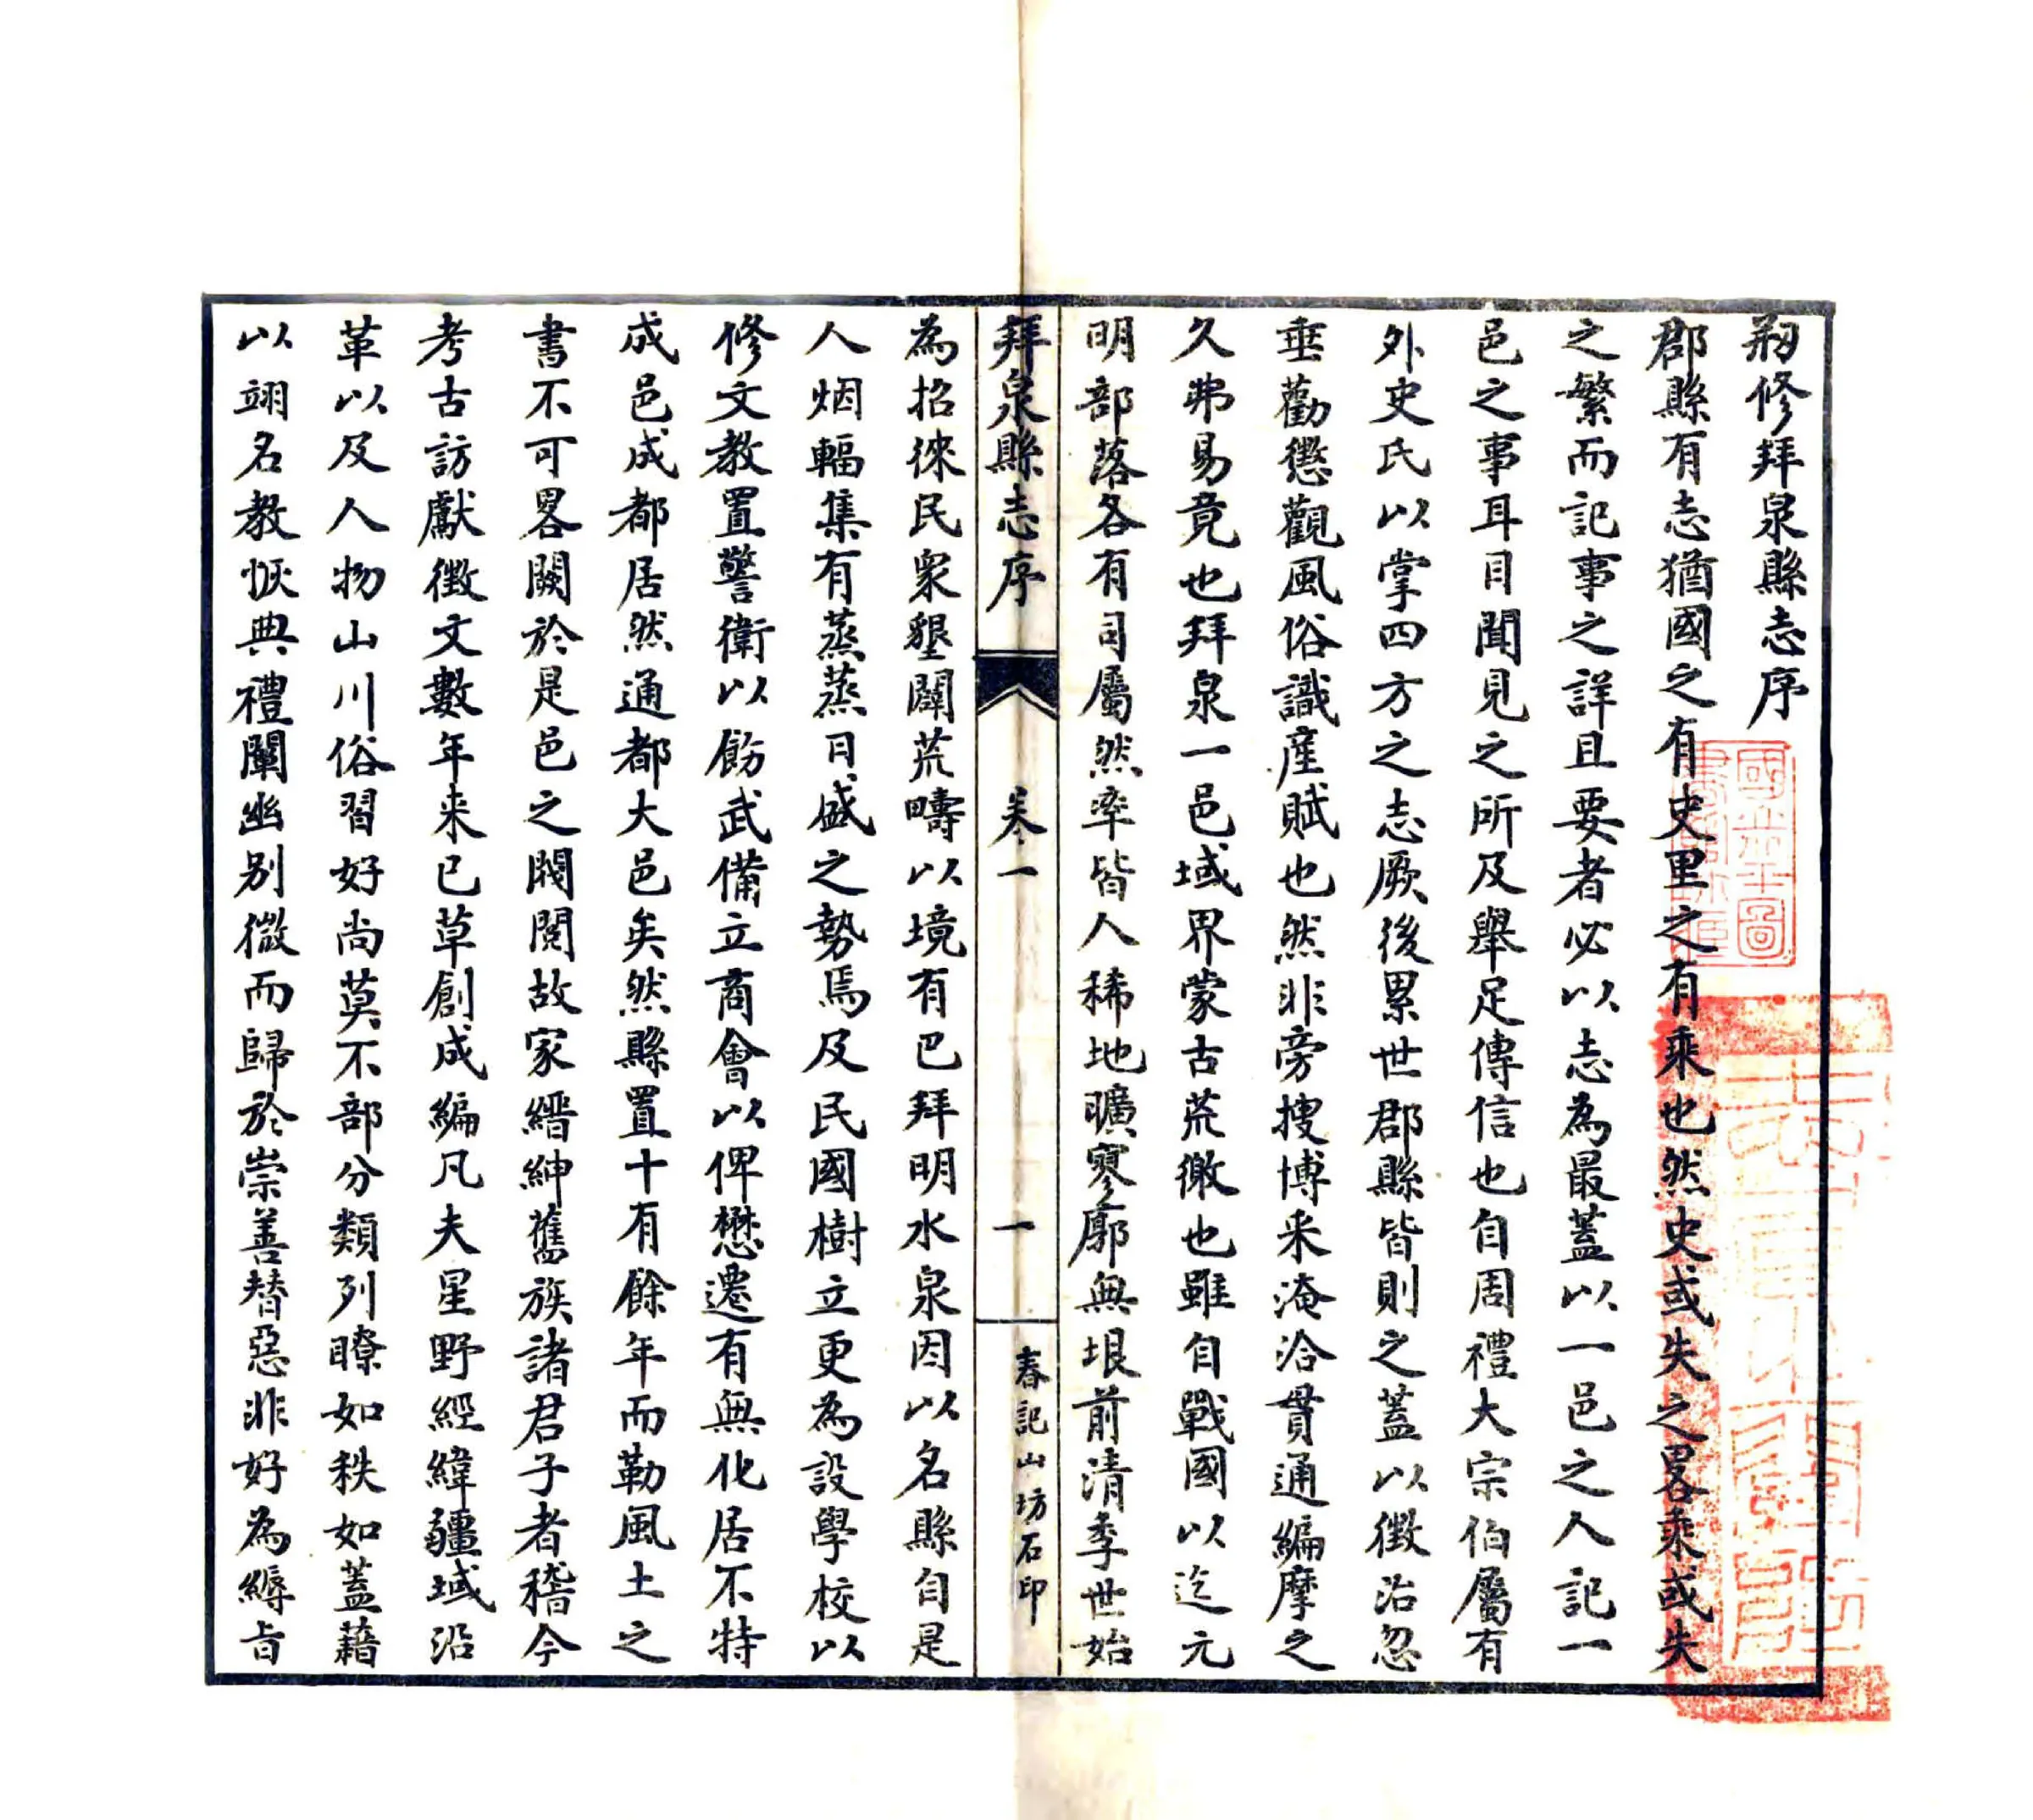 剏修拜泉縣志序
郡縣有志猶國之有史里之有乘也然史或失之畧乘或失
之繁而記事之詳且要者必以志為最蓋以一邑之人記一
邑之事耳目聞見之所及舉足傳信也自周禮大宗伯屬有
外史氏以掌四方之志厥後累世郡縣皆則之蓋以徵治忽
垂勸懲觀風俗識產賦也然非旁搜博采淹洽貫通編摩之
久弗易竟也拜泉一邑域界蒙古荒徼也雖自戰國以迄元
明部落各有司屬然率皆人稀地曠寥廓無垠前清季世始
拜泉縣志序 卷一 一 春記山坊石印
為招徠民衆墾闢荒疇以境有巴拜明水泉因以名縣自是
人烟輻集有蒸蒸日盛之勢焉及民國樹立更為設學校以
修文教置警衛以飭武備立商會以俾懋遷有無化居不特
成邑成都居然通都大邑矣然縣置十有餘年而勒風土之
書不可畧闕於是邑之閥閱故家縉紳舊族諸君子者稽今
考古訪獻徵文數年来已草創成編凡夫星野經緯疆域沿
革以及人物山川俗習好尚莫不部分類列瞭如秩如蓋藉
以翊名教恢典禮闡幽別微而歸於崇善替惡非好為縟旨